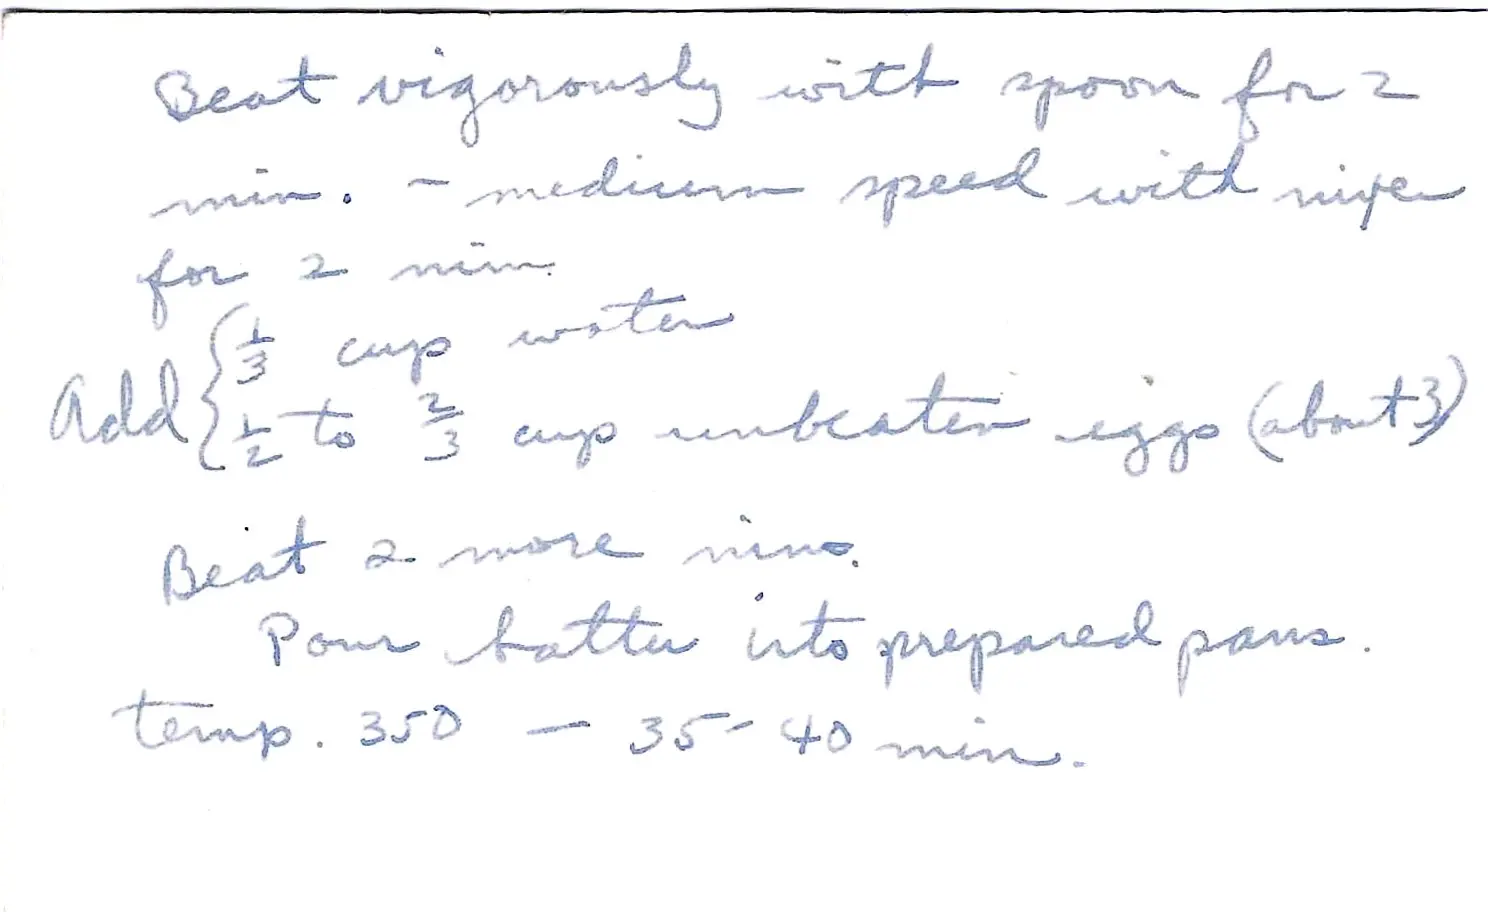 Beat vigorously with spoon for 2
min. - medium speed with mixer
for 2 min.
Add { 1/3 cup water
1/2 to 2/3 cup unbeaten eggs (about 3)
Beat 2 more mins.
Pour batter into prepared pans.
temp. 350 — 35-40 min.